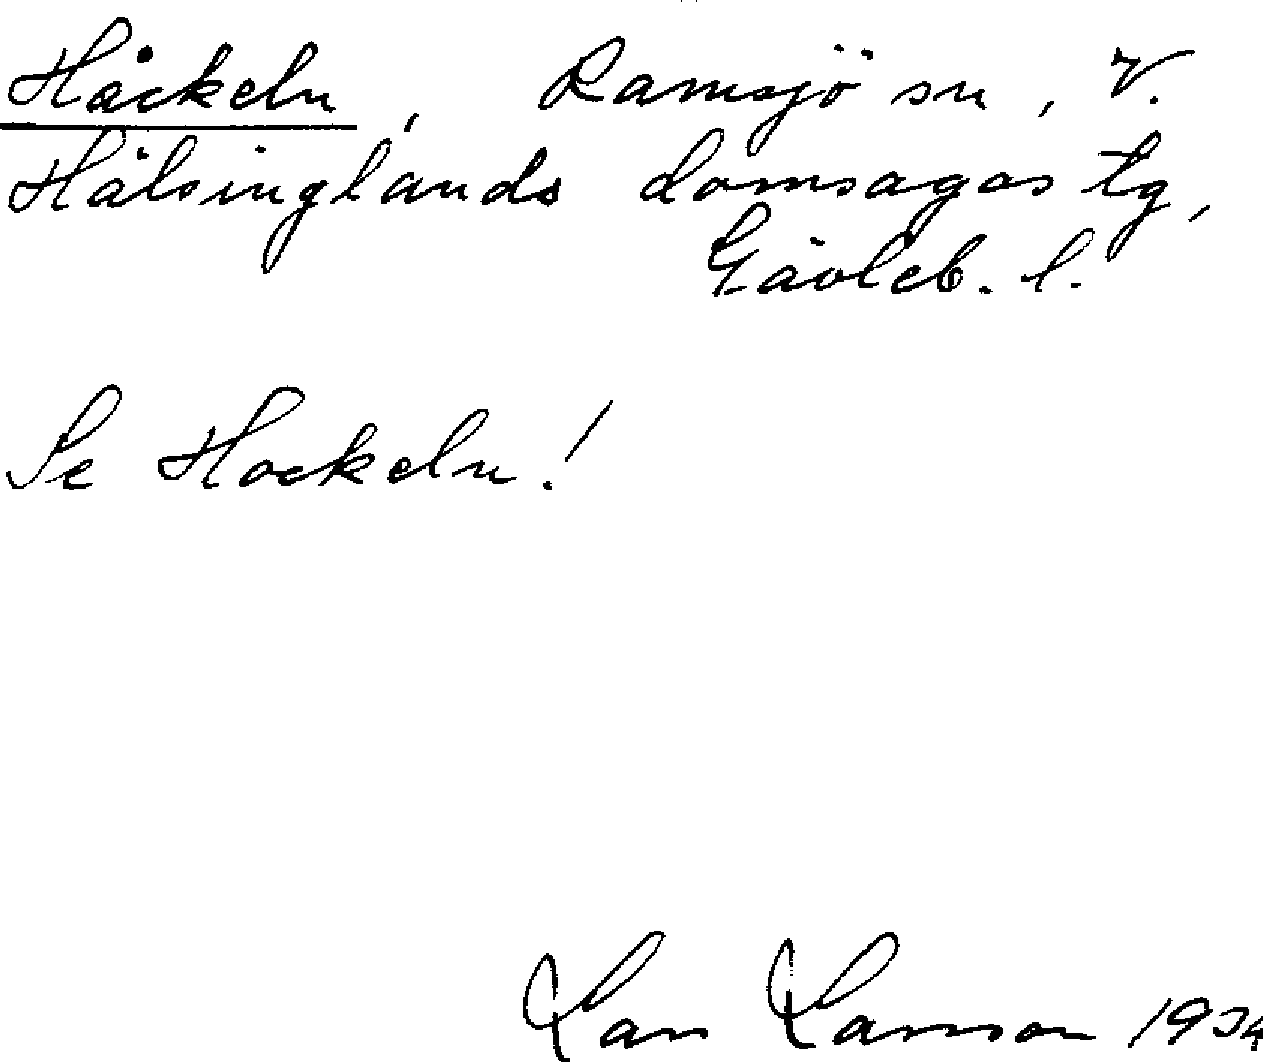 Håckeln, Ramsjö sn, V.
Hälsinglands domsagas tg,
Gävleb. l.
Se Hockeln!
Lars Larsson 1934